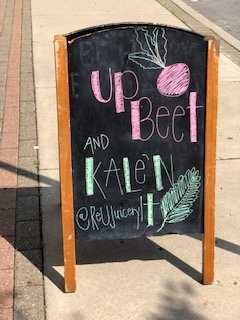 UP
BEET
AND
KALE'N
IT
@ReUJuicery